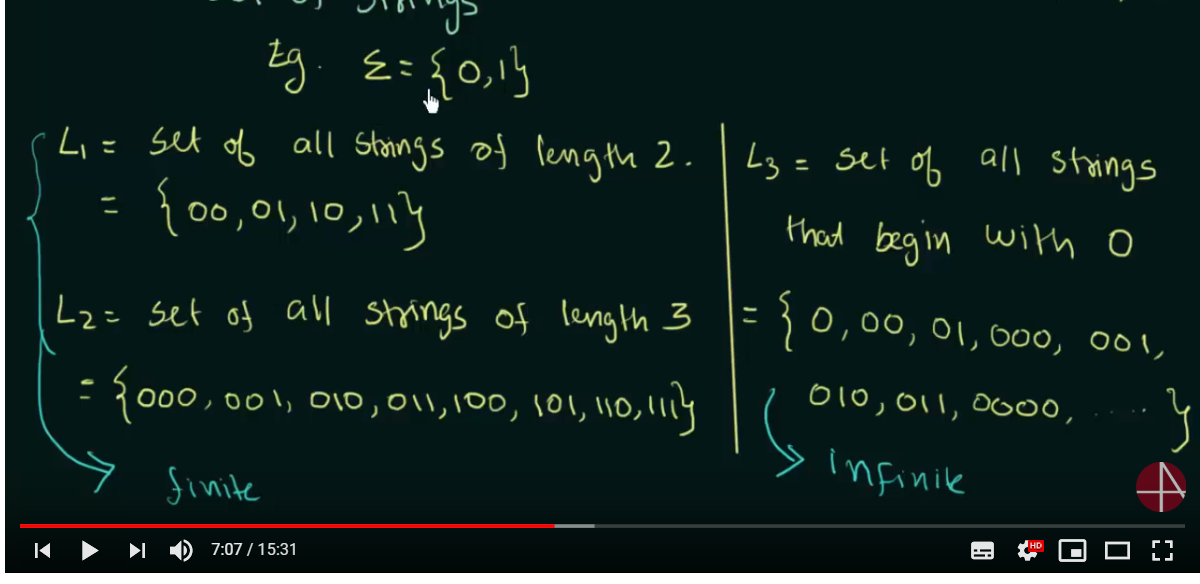 set of strings
Eg. Σ = {0,1}
L₁ = set of all strings of length 2.
= {00, 01, 10, 11}
L₂ = set of all strings of length 3
= {000, 001, 010, 011, 100, 101, 110, 111}
finite
L₃ = set of all strings
that begin with 0
= {0, 00, 01, 000, 001,
010, 011, 0000, ..... }
infinite
7:07 / 15:31
HD